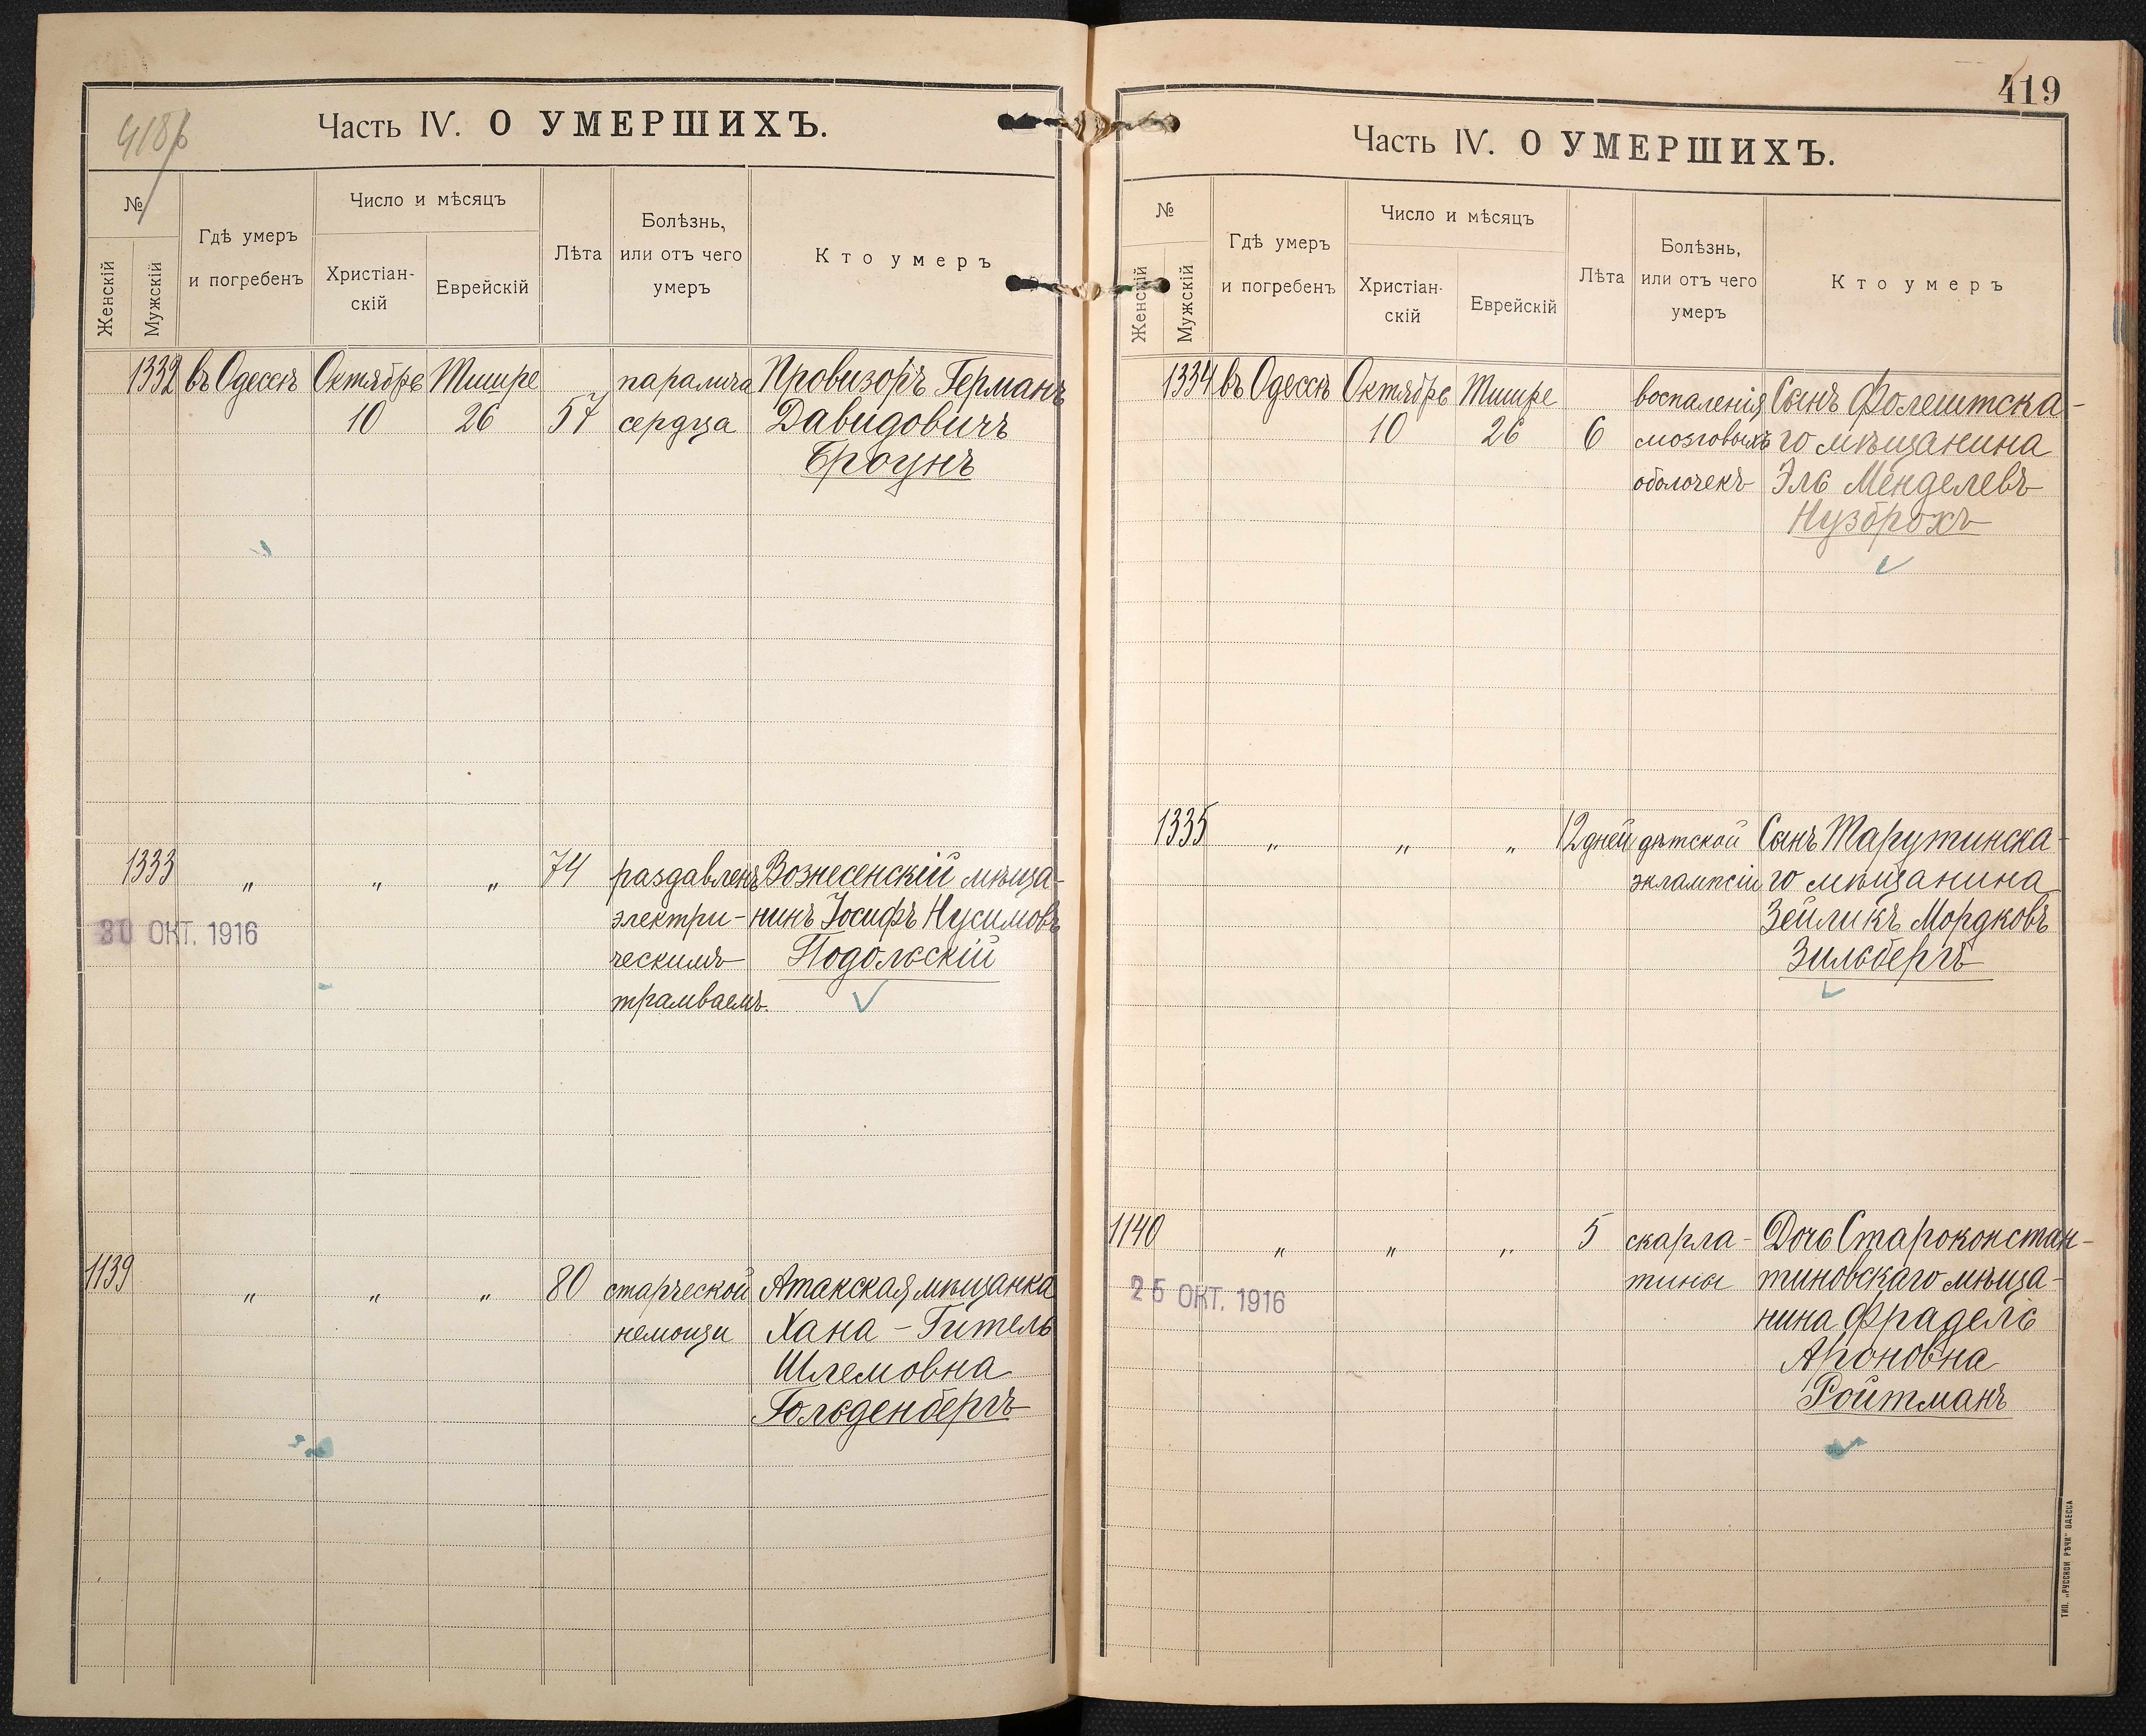 418б
Часть IV. О УМЕРШИХЪ.
№
Женскій
Мужскій
Гдѣ умеръ
и погребенъ
Число и мѣсяцъ
Христіан-
скій
Еврейскій
Лѣта
Болѣзнь,
или отъ чего
умеръ
Кто умеръ
1332 въ Одессѣ Октябрь Тишре паралича Провизоръ Германъ
10 26 57 сердца Давидовичъ
Броунъ
1333 " " " 74 раздавленъ Вознесенскій мѣща-
электри- нинъ Іосифъ Нусимовъ
30 ОКТ. 1916
ческимъ Подольскій
трамваемъ.
1139 " " " 80 старческой Атакская мѣщанка
немощи Хана-Гитель
Шлемовна
Гольденбергъ
419
Часть IV. О УМЕРШИХЪ.
№
Женскій
Мужскій
Гдѣ умеръ
и погребенъ
Число и мѣсяцъ
Христіан-
скій
Еврейскій
Лѣта
Болѣзнь,
или отъ чего
умеръ
Кто умеръ
1334 въ Одессѣ Октябрь Тишре воспаленія Сынъ Фолештска-
10 26 6 мозговыхъ го мѣщанина
оболочекъ Эль Менделевъ
Нузброхъ
1335 " " " 12 дней дѣтской Сынъ Тарутинска-
эклампсіи го мѣщанина
Зейликъ Мордковъ
Зильбергъ
1140 " " " 5 скарла- Дочь Староконстан-
тины тиновскаго мѣща-
25 ОКТ. 1916
нина Фрадель
Ароновна
Ройтманъ
ТИП. „РУССКОЙ РѢЧИ" ОДЕССА